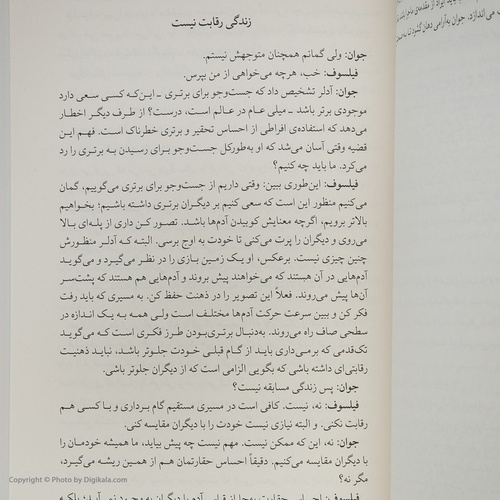 زندگی رقابت نیست
جوان: ولی گمانم همچنان متوجهش نیستم.
فیلسوف: خب، هرچه می‌خواهی از من بپرس.
جوان: آدلر تشخیص داد که جست‌وجو برای برتری ـ این‌که کسی سعی دارد
موجودی برتر باشد ـ میلی عام در عالم است، درست؟ از طرف دیگر اخطار
می‌دهد که استفاده‌ی افراطی از احساس تحقیر و برتری خطرناک است. فهم این
قضیه وقتی آسان می‌شد که او به‌طورکل جست‌وجو برای رسیدن به برتری را رد
می‌کرد. ما باید چه کنیم؟
فیلسوف: این‌طوری ببین: وقتی داریم از جست‌وجو برای برتری می‌گوییم، گمان
می‌کنیم منظور این است که سعی کنیم بر دیگران برتری داشته باشیم؛ بخواهیم
بالاتر برویم، اگرچه معنایش کوبیدن آدم‌ها باشد. تصور کن داری از پله‌ای بالا
می‌روی و دیگران را پرت می‌کنی تا خودت به اوج برسی. البته که آدلر منظورش
چنین چیزی نیست. برعکس، او یک زمین بازی را در نظر می‌گیرد و می‌گوید
آدم‌هایی در آن هستند که می‌خواهند پیش بروند و آدم‌هایی هم هستند که پشت‌سر
آن‌ها پیش می‌روند. فعلاً این تصویر را در ذهنت حفظ کن. به مسیری که باید رفت
فکر کن و ببین سرعت حرکت آدم‌ها مختلف است ولی همه به یک اندازه در
سطحی صاف راه می‌روند. به‌دنبال برتری‌بودن طرز فکری است که می‌گوید
تک‌قدمی که برمی‌داری باید از گام قبلی خودت جلوتر باشد، نباید ذهنیت
رقابتی‌ای داشته باشی که بگویی الزامی است که از دیگران جلوتر باشی.
جوان: پس زندگی مسابقه نیست؟
فیلسوف: نه، نیست. کافی است در مسیری مستقیم گام برداری و با کسی هم
رقابت نکنی. و البته نیازی نیست خودت را با دیگران مقایسه کنی.
جوان: نه، این که ممکن نیست. مهم نیست چه پیش بیاید، ما همیشه خودمان را
با دیگران مقایسه می‌کنیم. دقیقاً احساس حقارتمان هم از همین ریشه می‌گیرد،
مگر نه؟
Copyright © Photo by Digikala.com